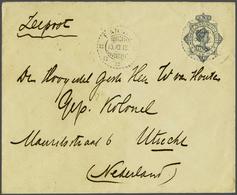 Zeepost
Den Hoog Edel Gestr Heer W van Houten
Gep. Kolonel
Mauritsstraat 6 Utrecht
(Nederland)